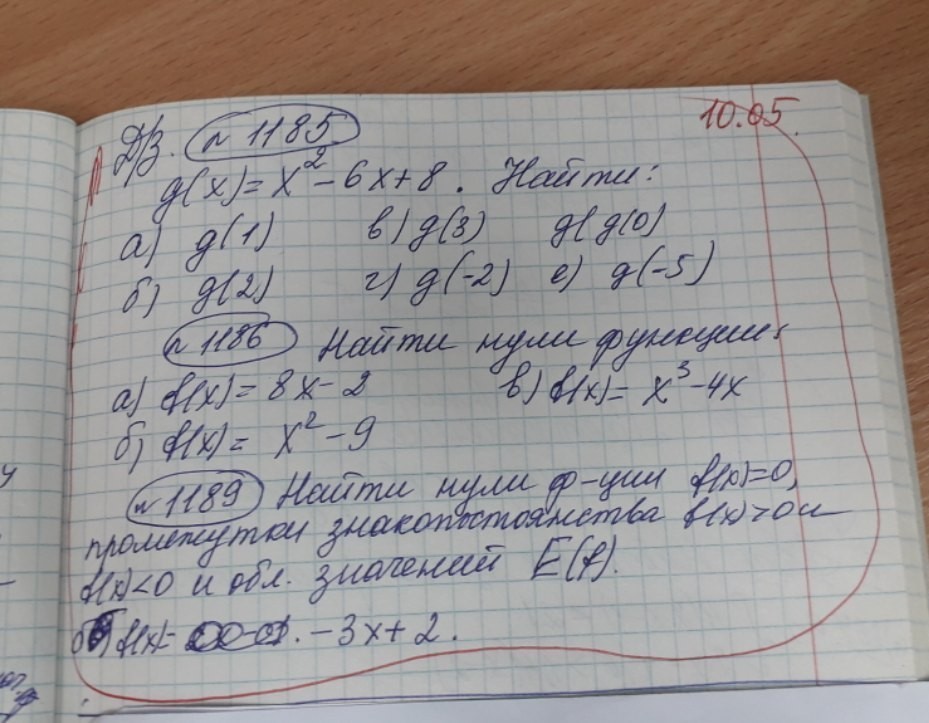 10.05.
Д/З. №1185
g(x)=x²-6x+8. Найти:
а) g(1) в) g(3) д) g(0)
б) g(2) г) g(-2) е) g(-5)
№1186 Найти нули функции:
а) f(x)=8x-2 в) f(x)=x³-4x
б) f(x)=x²-9
№1189 Найти нули ф-ции f(x)=0,
промежутки знакопостоянства f(x)>0 и
f(x)<0 и обл. значений E(f).
б) f(x)= -3x+2.